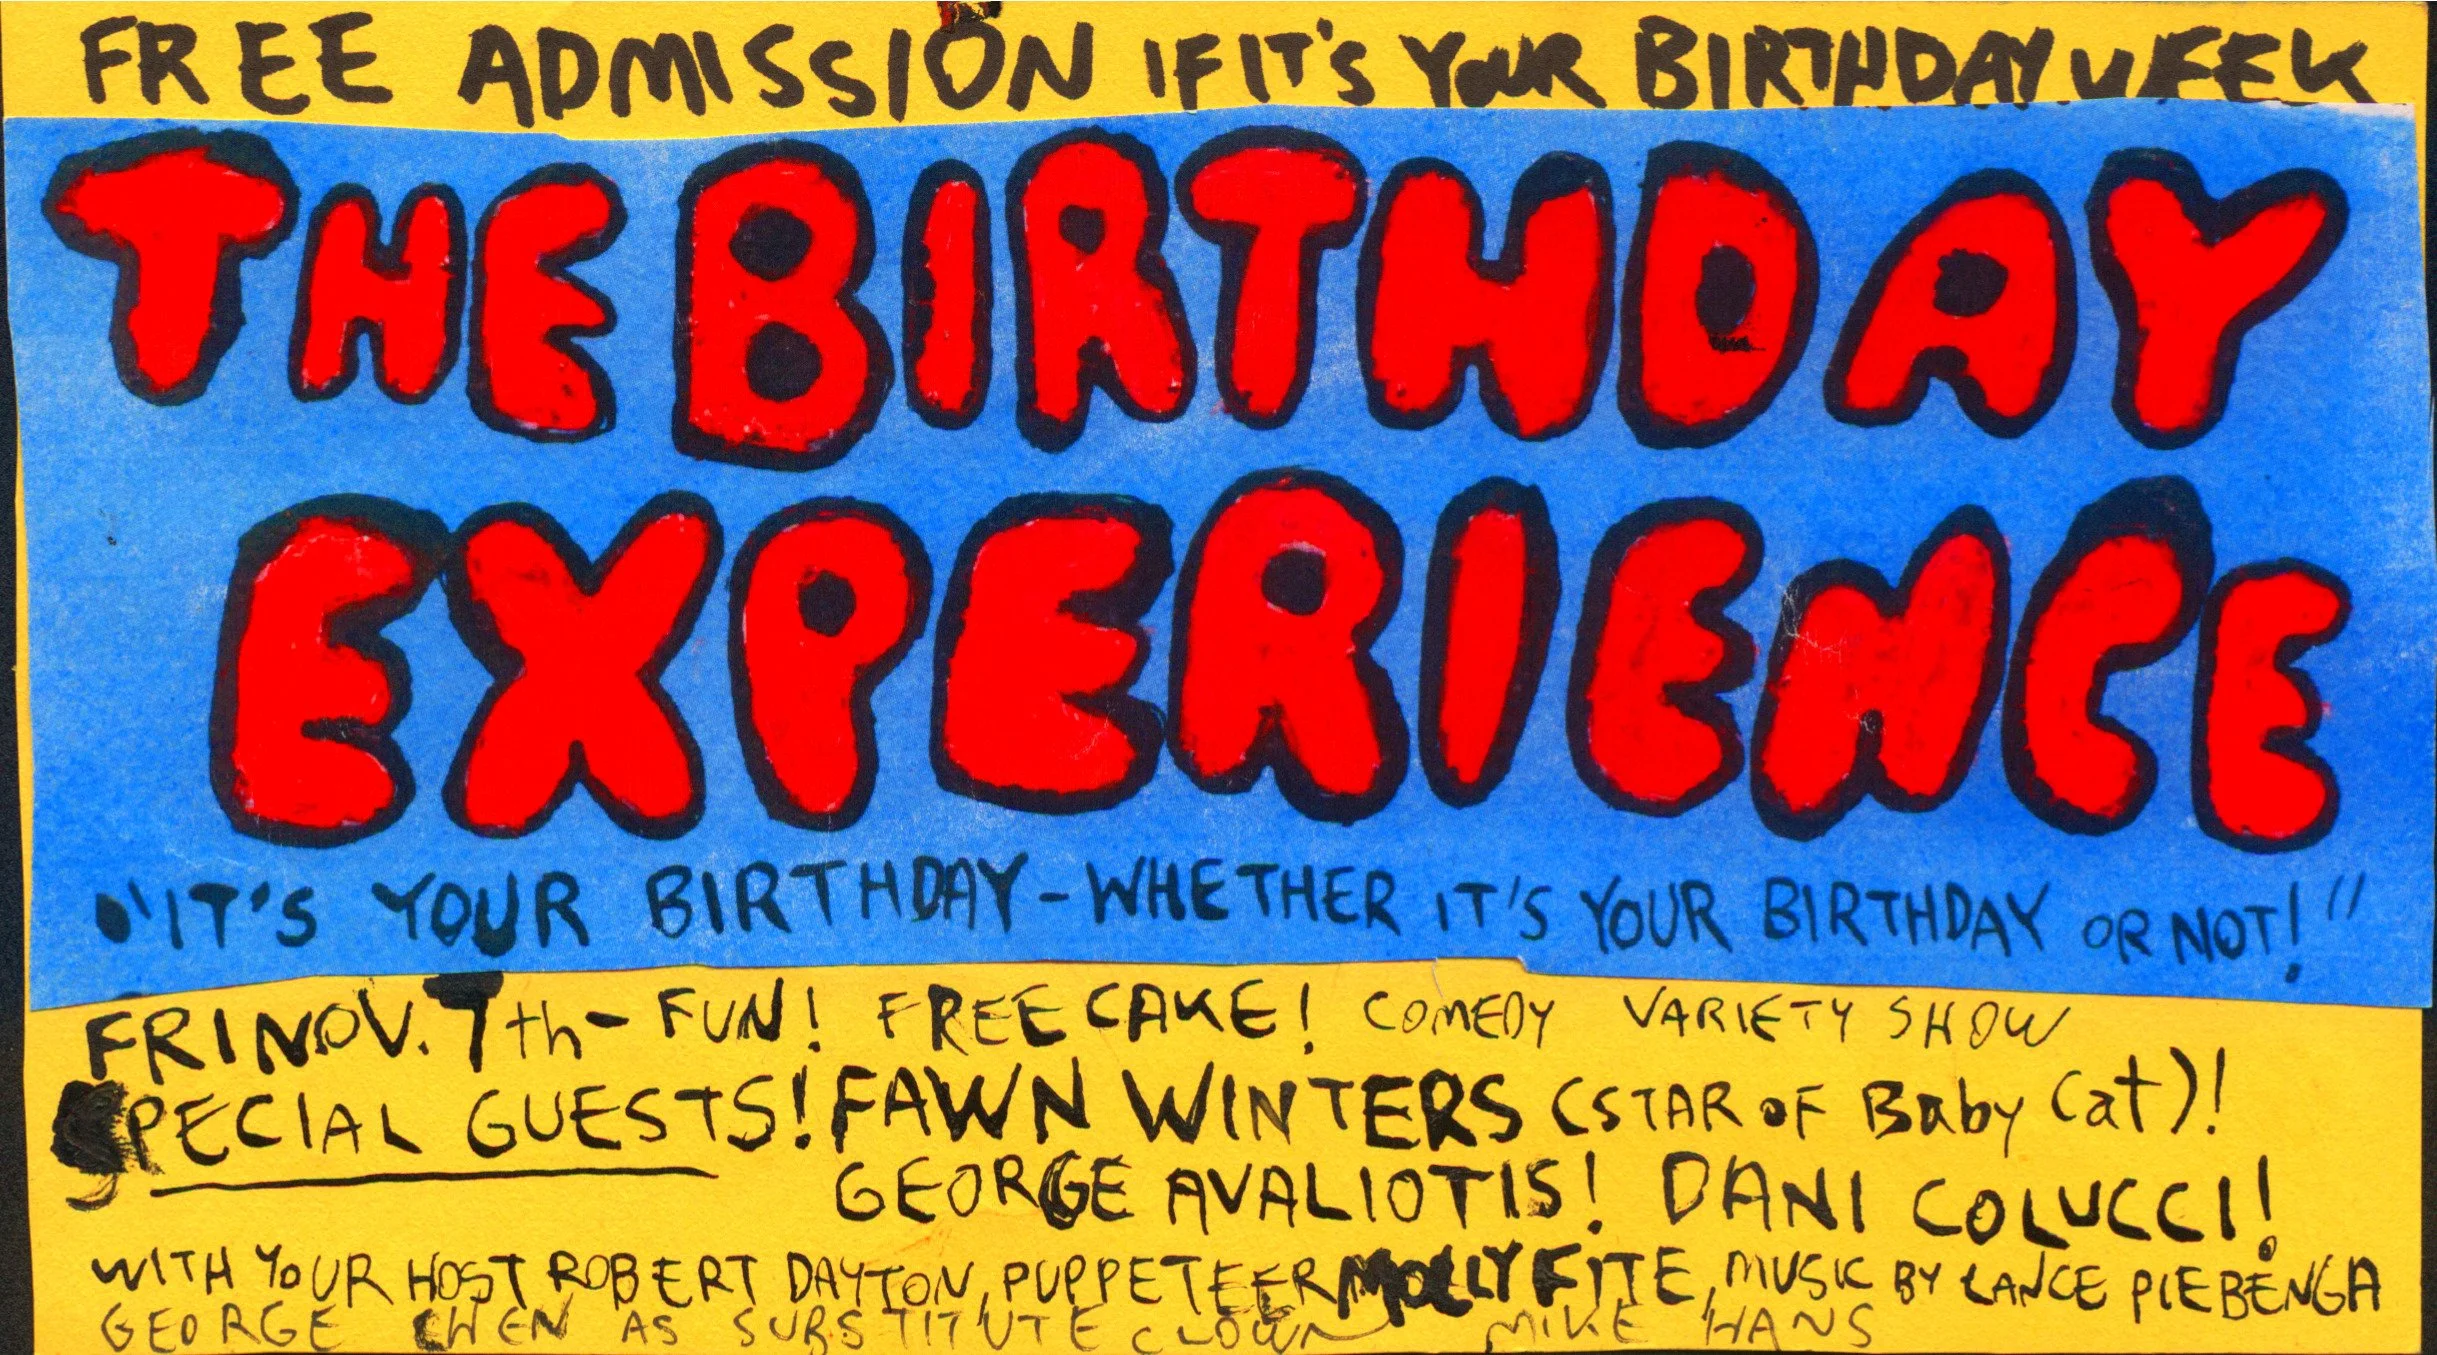 FREE ADMISSION IF IT'S YOUR BIRTHDAY WEEK
THE BIRTHDAY
EXPERIENCE
"IT'S YOUR BIRTHDAY - WHETHER IT'S YOUR BIRTHDAY OR NOT!"
FRI NOV. 7th - FUN! FREE CAKE! COMEDY VARIETY SHOW
SPECIAL GUESTS! FAWN WINTERS (STAR OF Baby Cat)!
GEORGE AVALIOTIS! DANI COLUCCI!
WITH YOUR HOST ROBERT DAYTON, PUPPETEER MOLLY FITE, MUSIC BY LANCE PLEBENGA
GEORGE CHEN AS SUBSTITUTE CLOWN MIKE HANS